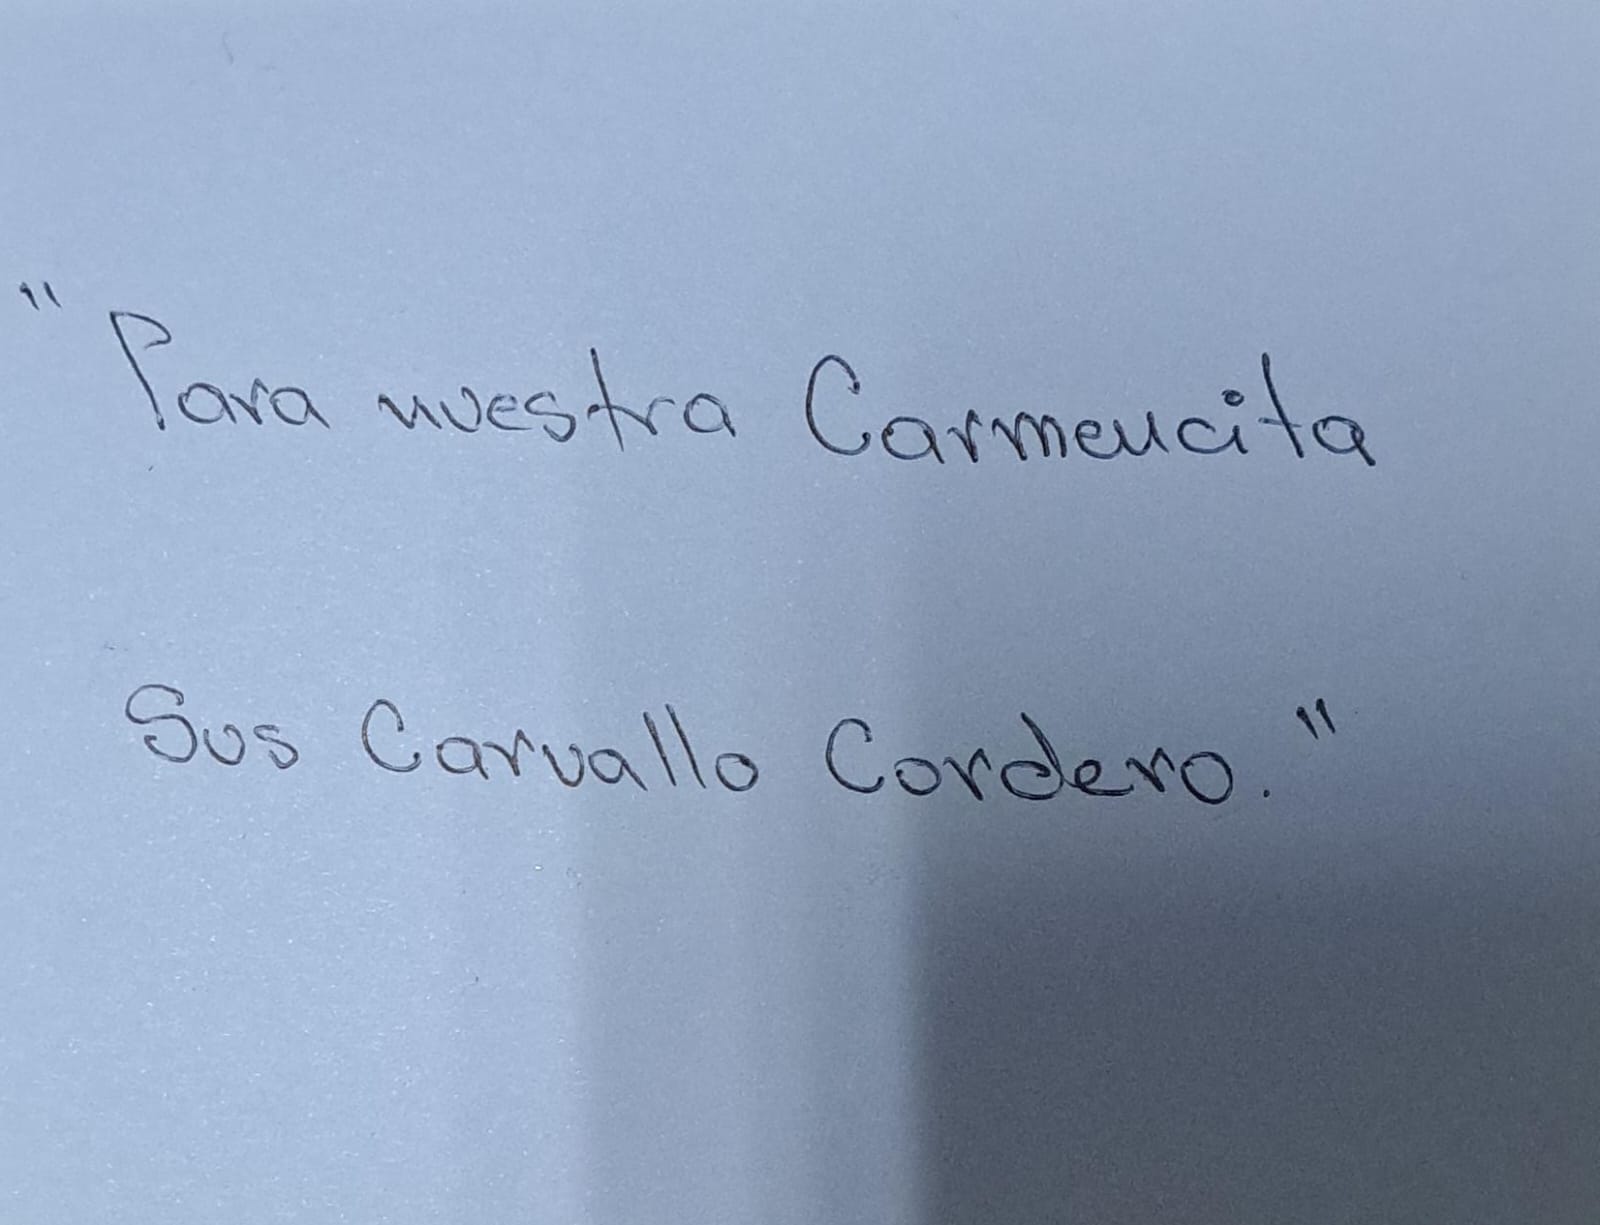 "Para nuestra Carmencita
Sus Carvallo Cordero."